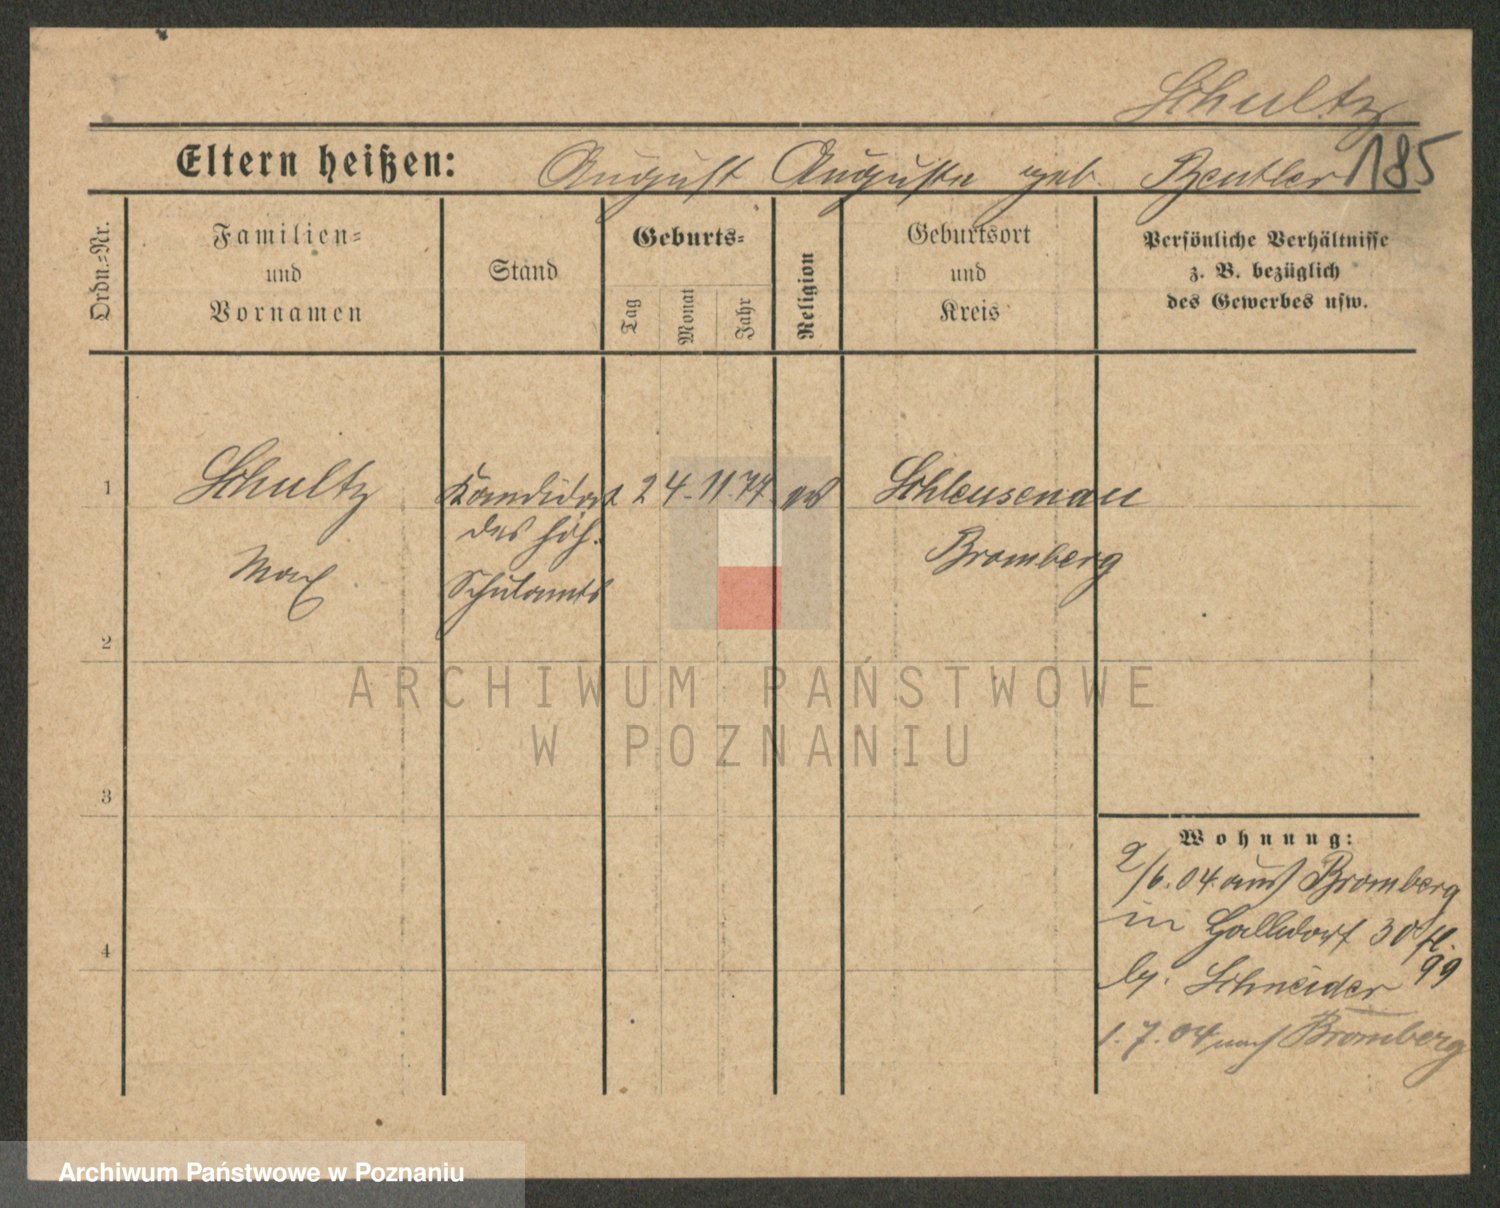 Schultz
Eltern heißen: August Auguste geb. Beutler 185
Ordn.-Nr.
Familien- und Vornamen
Stand
Geburts-
Tag
Monat
Jahr
Religion
Geburtsort und Kreis
Persönliche Verhältnisse
z. B. bezüglich
des Gewerbes usw.
1 Schultz Kandidat 24. 11. 77 ev Schleusenau
des höh.
Max Schulamts Bromberg
2
3
4
Wohnung:
2/6. 04. aus Bromberg
in 30
b. Schneider 99
1. 7. 04 nach Bromberg
ARCHIWUM PAŃSTWOWE
W POZNANIU
Archiwum Państwowe w Poznaniu